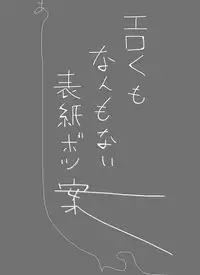 エロくも
なんもない
表紙ボツ
案